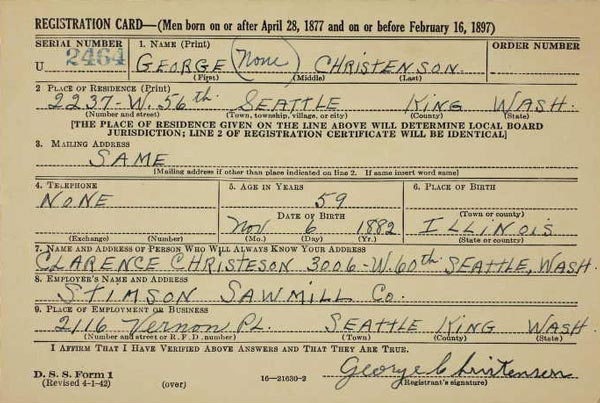 REGISTRATION CARD—(Men born on or after April 28, 1877 and on or before February 16, 1897)
SERIAL NUMBER 1. NAME (Print) ORDER NUMBER
U 2464 GEORGE (None) CHRISTENSON
(First) (Middle) (Last)
2. PLACE OF RESIDENCE (Print)
2237-W. 56th SEATTLE KING WASH.
(Number and street) (Town, township, village, or city) (County) (State)
[THE PLACE OF RESIDENCE GIVEN ON THE LINE ABOVE WILL DETERMINE LOCAL BOARD
JURISDICTION; LINE 2 OF REGISTRATION CERTIFICATE WILL BE IDENTICAL]
3. MAILING ADDRESS
SAME
[Mailing address if other than place indicated on line 2. If same insert word same]
4. TELEPHONE 5. AGE IN YEARS 6. PLACE OF BIRTH
NONE 59
DATE OF BIRTH (Town or county)
Nov 6 1882 ILLINOIS
(Exchange) (Number) (Mo.) (Day) (Yr.) (State or country)
7. NAME AND ADDRESS OF PERSON WHO WILL ALWAYS KNOW YOUR ADDRESS
CLARENCE CHRISTESON 3006-W. 60th SEATTLE, WASH.
8. EMPLOYER'S NAME AND ADDRESS
STIMSON SAWMILL CO.
9. PLACE OF EMPLOYMENT OR BUSINESS
2116 Vernon PL. SEATTLE KING WASH
(Number and street or R. F. D. number) (Town) (County) (State)
I AFFIRM THAT I HAVE VERIFIED ABOVE ANSWERS AND THAT THEY ARE TRUE.
D. S. S. Form 1 George Christensen
(Revised 4-1-42) (over) 16—21630-2 (Registrant's signature)